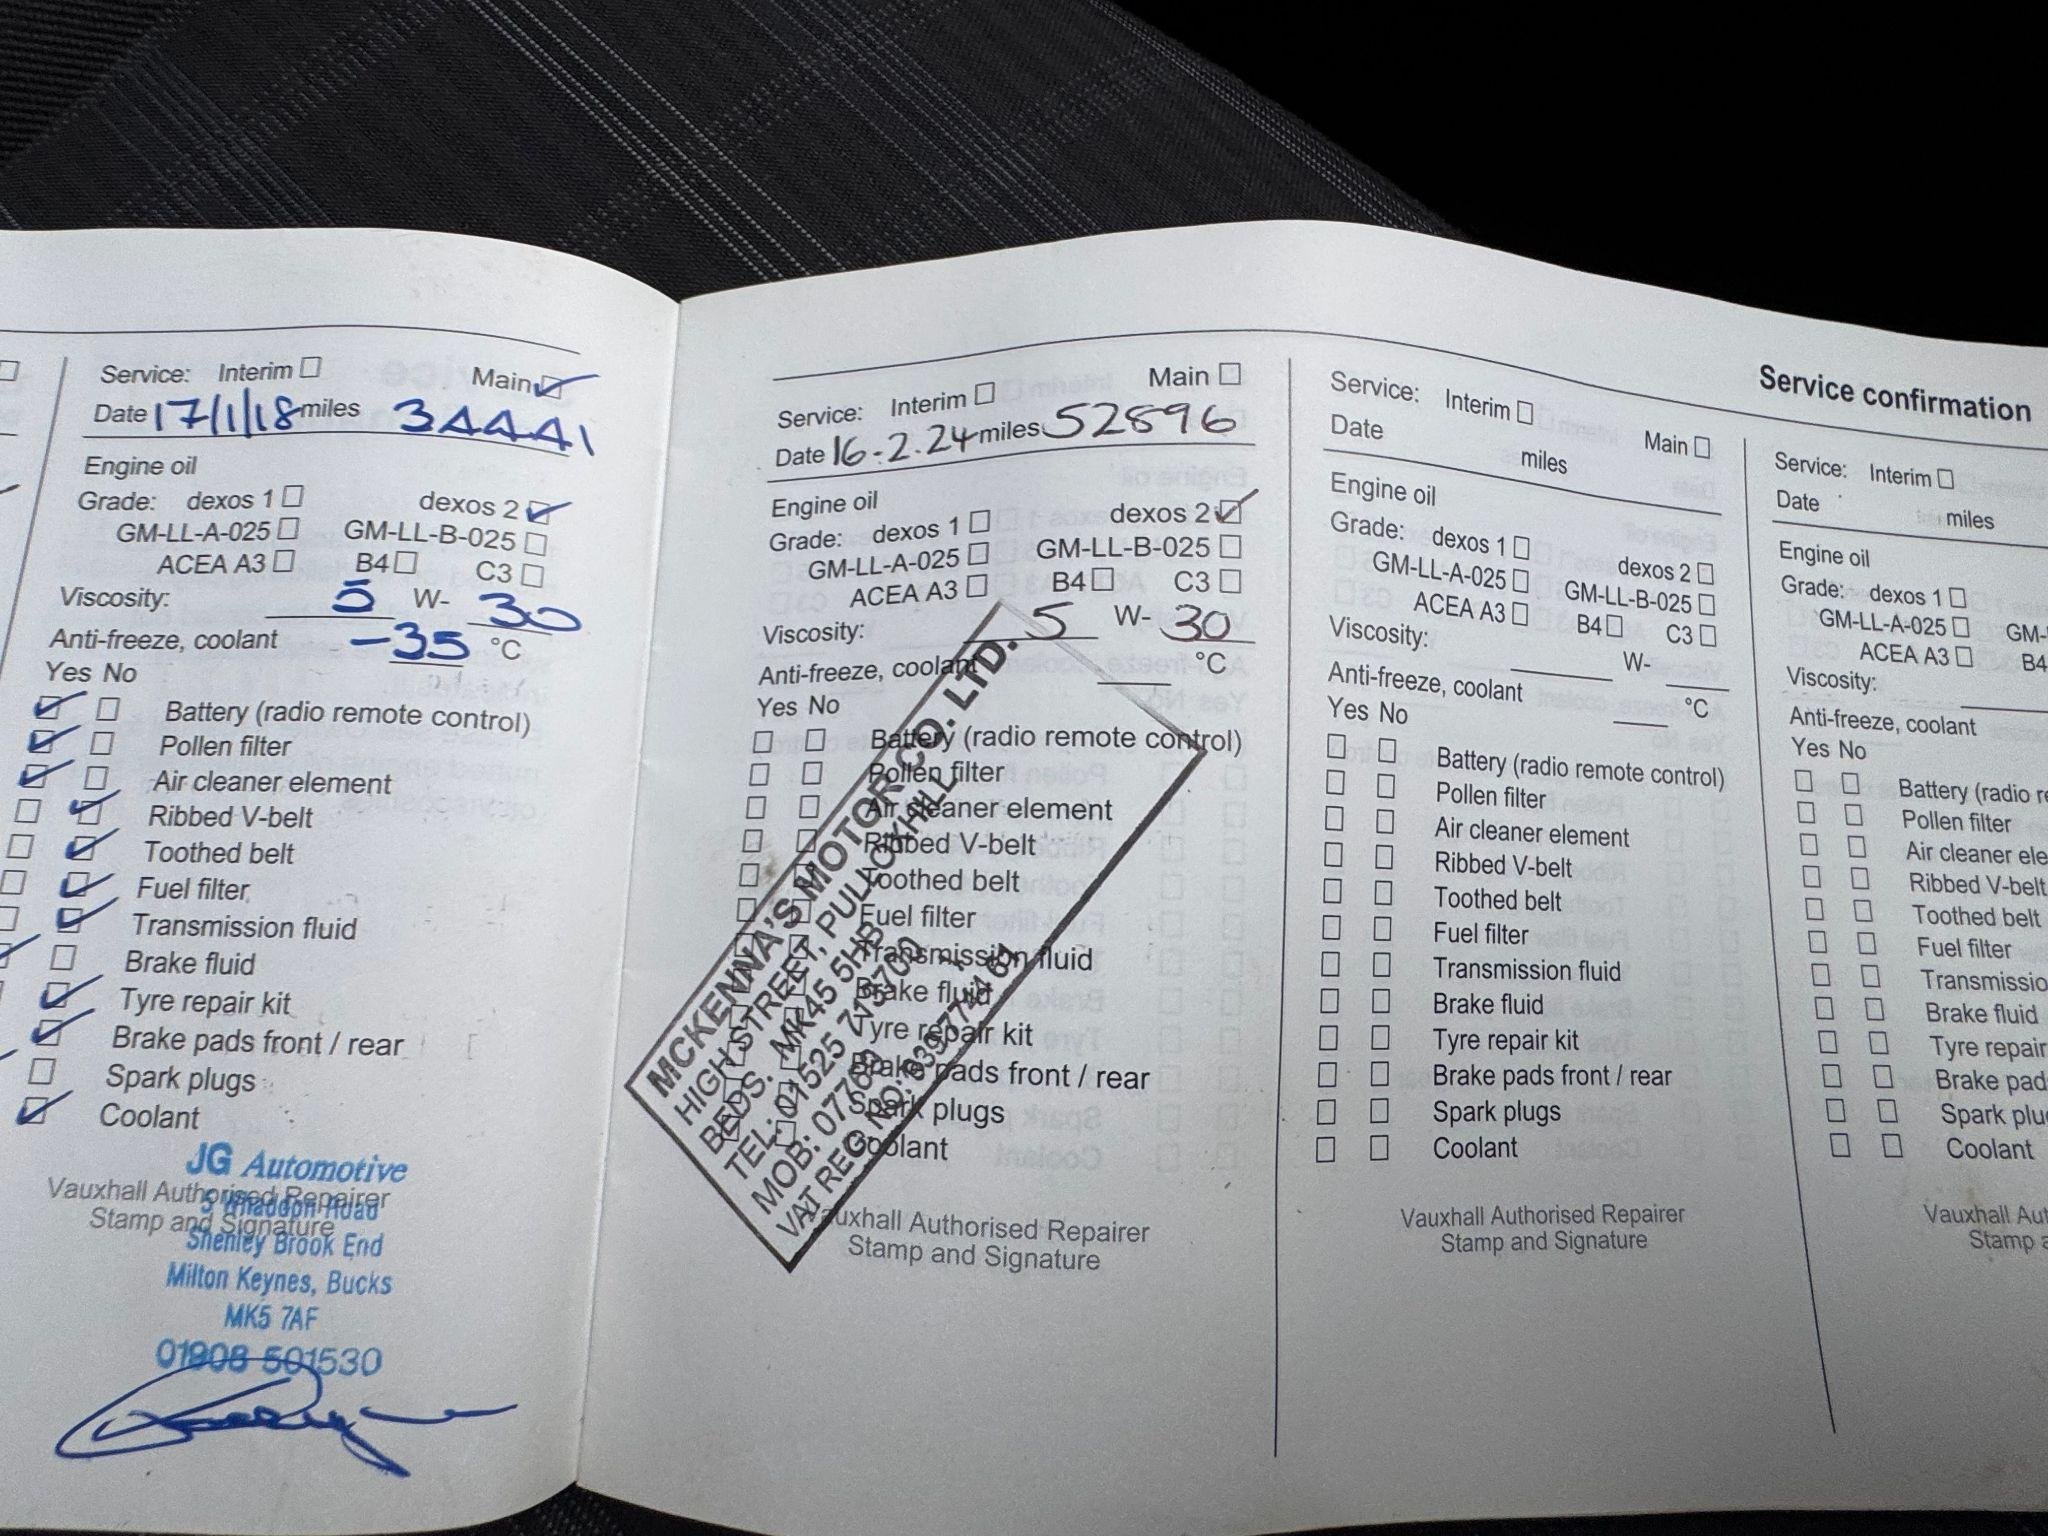 Service: Interim
Main
Date 17/1/18 miles 34441
Engine oil
Grade: dexos 1 dexos 2
GM-LL-A-025 GM-LL-B-025
ACEA A3 B4 C3
Viscosity: 5 W- 30
Anti-freeze, coolant -35 °C
Yes No
Battery (radio remote control)
Pollen filter
Air cleaner element
Ribbed V-belt
Toothed belt
Fuel filter
Transmission fluid
Brake fluid
Tyre repair kit
Brake pads front / rear
Spark plugs
Coolant
JG Automotive
Vauxhall Authorised Repairer
5 Whaddon Road
Stamp and Signature
Shenley Brook End
Milton Keynes, Bucks
MK5 7AF
01908 501530
Main
Service: Interim
Date 16.2.24 miles 52896
Engine oil
Grade: dexos 1 dexos 2
GM-LL-A-025 GM-LL-B-025
ACEA A3 B4 C3
Viscosity: 5 W- 30
Anti-freeze, coolant °C
Yes No
Battery (radio remote control)
Pollen filter
Air cleaner element
Ribbed V-belt
Toothed belt
Fuel filter
Transmission fluid
Brake fluid
Tyre repair kit
Brake pads front / rear
Spark plugs
Coolant
MCKENNA'S MOTOR CO. LTD.
HIGH STREET, PULLOXHILL
BEDS. MK45 5HB
TEL: 01525 715700
MOB:
VAT REG NO:
Vauxhall Authorised Repairer
Stamp and Signature
Service confirmation
Service: Interim
Main
Date
miles
Engine oil
Grade: dexos 1
dexos 2
GM-LL-A-025 GM-LL-B-025
ACEA A3 B4 C3
Viscosity: W-
Anti-freeze, coolant °C
Yes No
Battery (radio remote control)
Pollen filter
Air cleaner element
Ribbed V-belt
Toothed belt
Fuel filter
Transmission fluid
Brake fluid
Tyre repair kit
Brake pads front / rear
Spark plugs
Coolant
Vauxhall Authorised Repairer
Stamp and Signature
Service: Interim
Date miles
Engine oil
Grade: dexos 1
GM-LL-A-025 GM-
ACEA A3 B4
Viscosity:
Anti-freeze, coolant
Yes No
Battery (radio re
Pollen filter
Air cleaner ele
Ribbed V-belt
Toothed belt
Fuel filter
Transmissio
Brake fluid
Tyre repair
Brake pad
Spark plu
Coolant
Vauxhall Aut
Stamp a